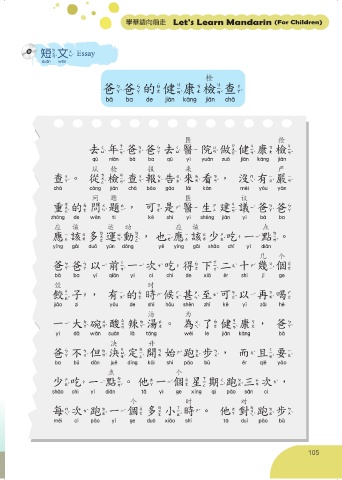 學華語向前走 Let's Learn Mandarin (For Children)
短文 Essay
duǎn wén
检
爸爸的健康檢查
bà ba de jiàn kāng jiǎn chá
医 检
去年爸爸去醫院做健康檢
qù nián bà ba qù yī yuàn zuò jiàn kāng jiǎn
从 检 报 来 严
查。從檢查報告來看，沒有嚴
chá cóng jiǎn chá bào gào lái kàn méi yǒu yán
问 题 医 议
重的問題，可是醫生建議爸爸
zhòng de wèn tí kě shì yī shēng jiàn yì bà ba
应 该 运 动 应 该 点
應該多運動，也應該少吃一點。
yīng gāi duō yùn dòng yě yīng gāi shǎo chī yì diǎn
几 个
爸爸以前一次吃得下二十幾個
bà ba yǐ qián yí cì chī de xià èr shí jǐ ge
饺 时
餃子，有的時候甚至可以再喝
jiǎo zi yǒu de shí hòu shèn zhì kě yǐ zài hē
汤 为
一大碗酸辣湯。為了健康，爸
yí dà wǎn suān là tāng wèi le jiàn kāng bà
决 开
爸不但決定開始跑步，而且要
ba bú dàn jué dìng kāi shǐ pǎo bù ér qiě yào
点 个
少吃一點。他一個星期跑三次，
shǎo chī yì diǎn tā yí ge xīng qí pǎo sān cì
个 时 对
每次跑一個多小時。他對跑步
měi cì pǎo yí ge duō xiǎo shí tā duì pǎo bù
105